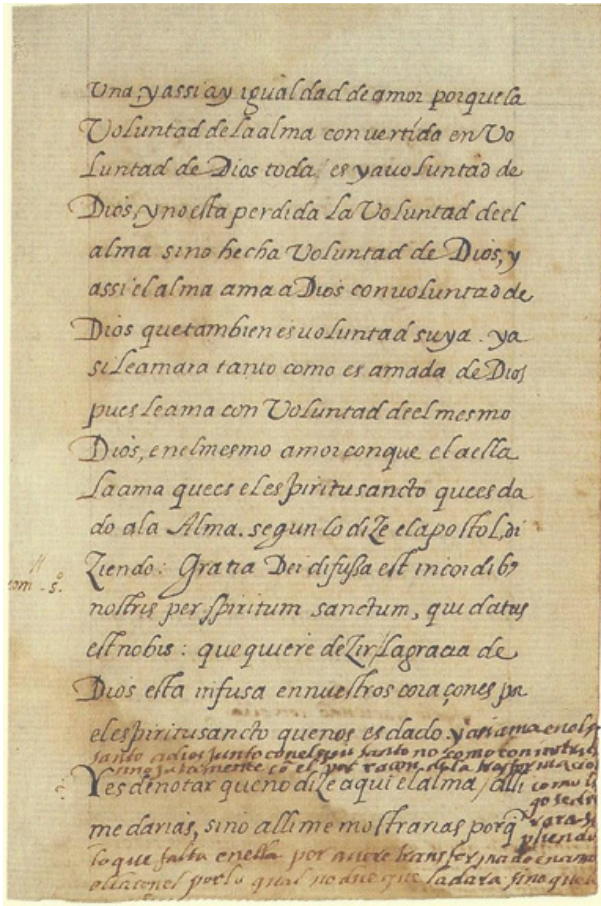 Una, y assi ay igualdad de amor porque la
Voluntad de la alma convertida en Vo
luntad de Dios toda / es ya voluntad de
Dios, y no esta perdida la Voluntad de el
alma sino hecha Voluntad de Dios, y
assi el alma ama a Dios con voluntad de
Dios que tambien es voluntad suya . ya
si le amara tanto como es amada de Dios
pues le ama con Voluntad de el mesmo
Dios, en el mesmo amor con que el a ella
la ama que es el espiritu sancto que es da
do a la Alma. segun lo dize el apostol, di
ziendo: Gratia Dei difussa est in cordibꝰ
nostris per spiritum sanctum, qui datus
est nobis : que quiere dezir / La gracia de
Dios esta infusa en nuestros coraçones por
el espiritu sancto que nos es dado. y asi ama en el
sancto a dios junto con el spiritu sancto no como con
juntamente cō el por raçon de la
Y es de notar que no dize aqui el alma / alli
como lo
me darias, sino alli me mostrarias porq̄
lo que falta en ella por aver
con el por lo qual no dice que la dara sino que
rom . 5.